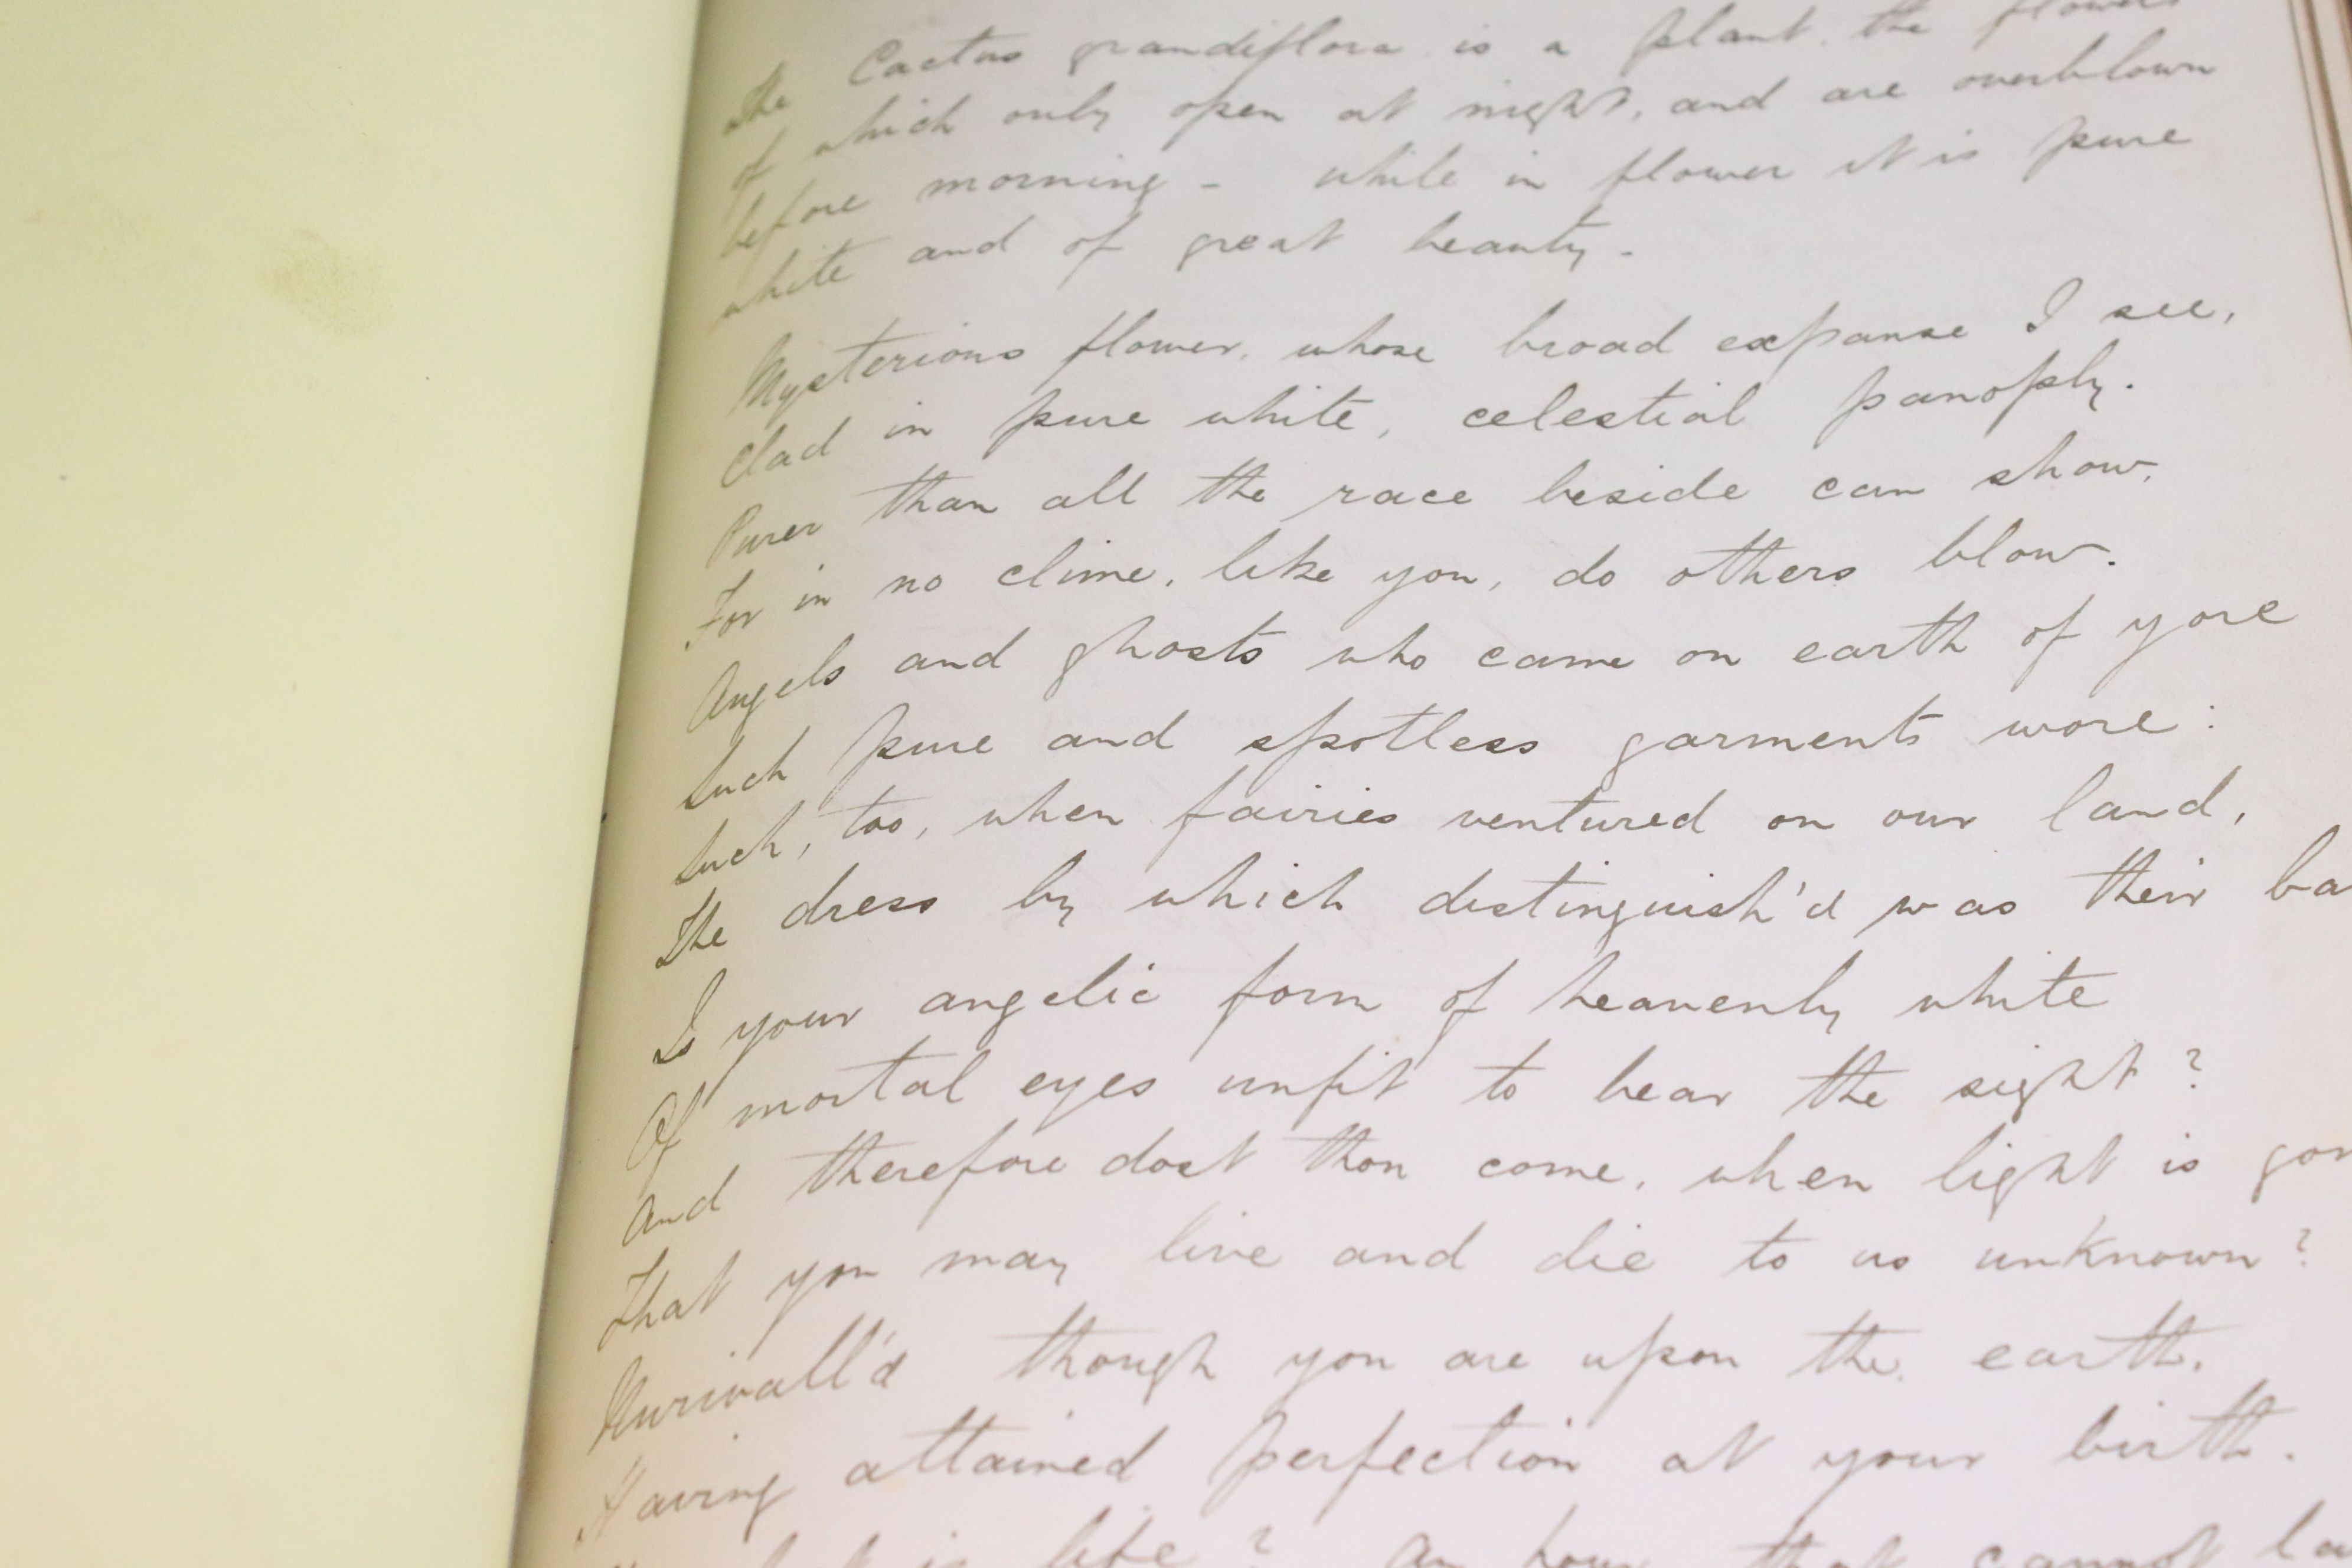 The Cactus grandiflora is a plant, the flowers
of which only open at night, and are overblown
before morning - while in flower it is pure
white and of great beauty.
Mysterious flower, whose broad expanse I see,
Clad in pure white, celestial panoply.
Purer than all the race beside can show,
For in no clime, like you, do others blow.
Angels and ghosts who came on earth of yore
Such pure and spotless garments wore:
Such, too, when fairies ventured on our land,
The dress by which distinguish'd was their ba
Is your angelic form of heavenly white
Of mortal eyes unfit to bear the sight?
And therefore dost thou come, when light is gon
That you may live and die to us unknown?
Unrivall'd though you are upon the earth,
Having attained perfection at your birth.
is life? An hour that cannot la